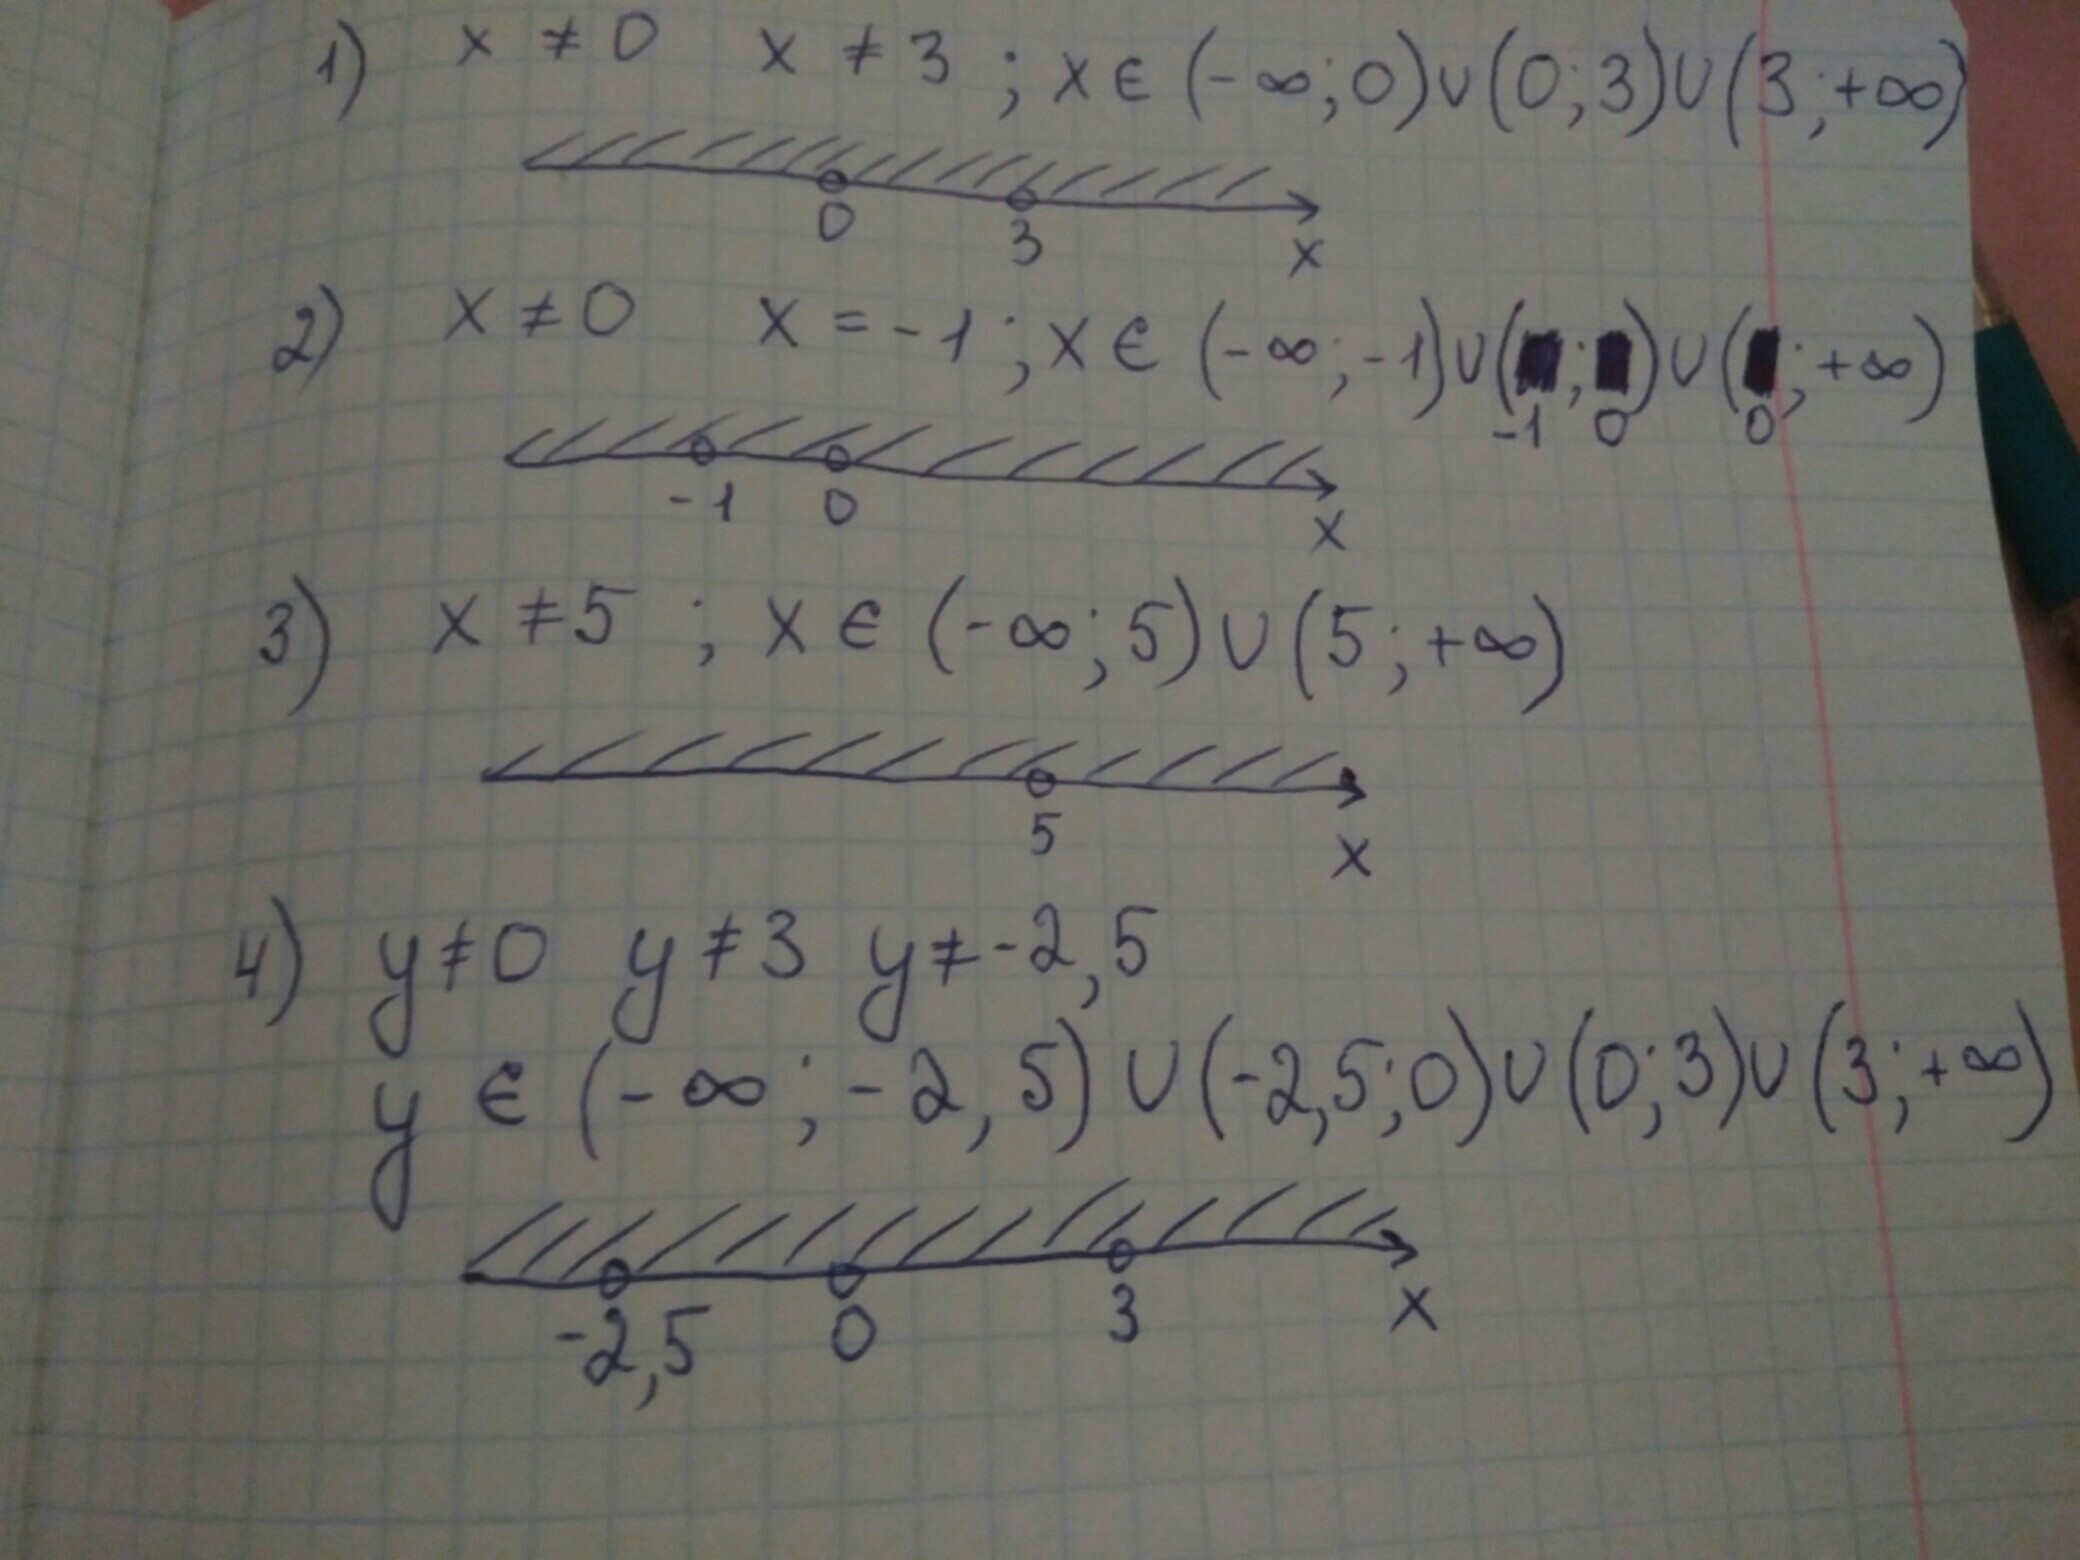 1) x ≠ 0 x ≠ 3 ; x ∈ (-∞; 0) ∪ (0; 3) ∪ (3; +∞)
0 3 x
2) x ≠ 0 x = -1 ; x ∈ (-∞; -1) ∪ ( ; ) ∪ ( ; +∞)
-1 0 0
-1 0 x
3) x ≠ 5 ; x ∈ (-∞; 5) ∪ (5; +∞)
5 x
4) y ≠ 0 y ≠ 3 y ≠ -2,5
y ∈ (-∞; -2,5) ∪ (-2,5; 0) ∪ (0; 3) ∪ (3; +∞)
-2,5 0 3 x